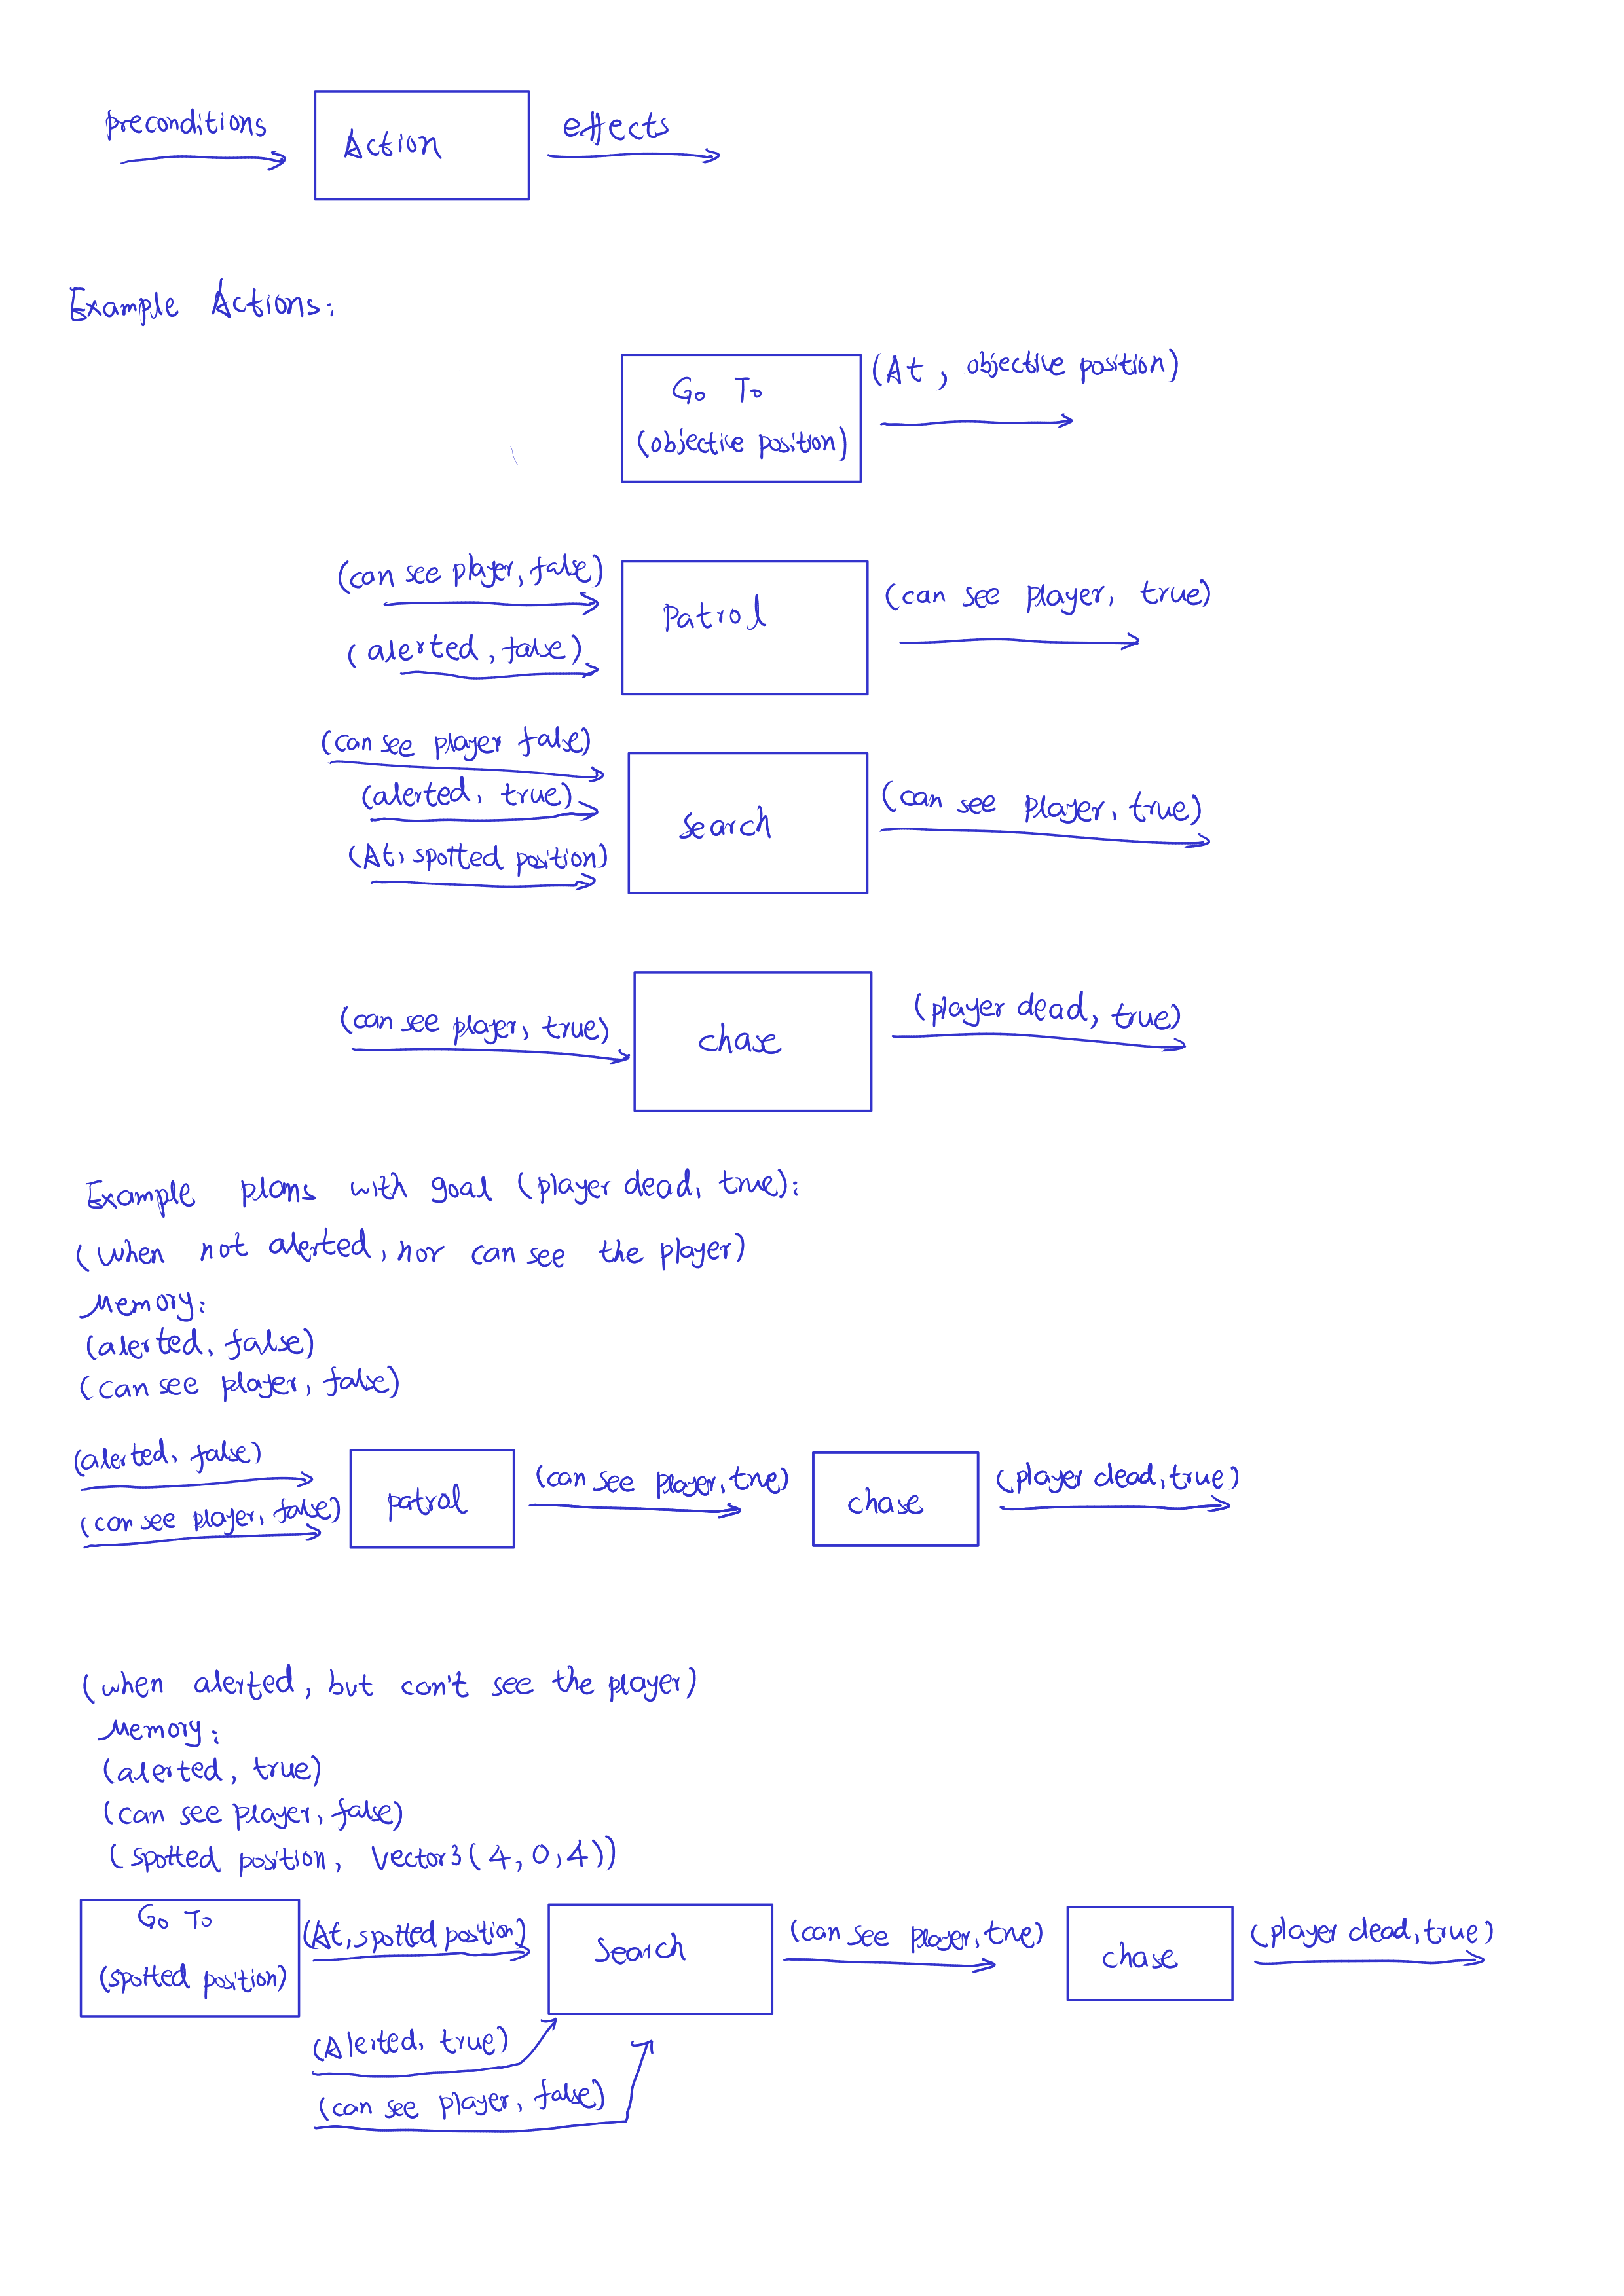 preconditions
Action
effects
Example Actions:
Go To
(objective position)
(At, objective position)
(can see player, false)
(alerted, false)
Patrol
(can see player, true)
(can see player false)
(alerted, true)
(At, spotted position)
Search
(can see player, true)
(can see player, true)
chase
(player dead, true)
Example plans with goal (player dead, true):
(when not alerted, nor can see the player)
Memory:
(alerted, false)
(can see player, false)
(alerted, false)
(can see player, false)
patrol
(can see player, true)
chase
(player dead, true)
(when alerted, but can't see the player)
Memory:
(alerted, true)
(can see player, false)
(spotted position, Vector3(4,0,4))
Go To
(spotted position)
(At, spotted position)
Search
(can see player, true)
chase
(player dead, true)
(Alerted, true)
(can see player, false)